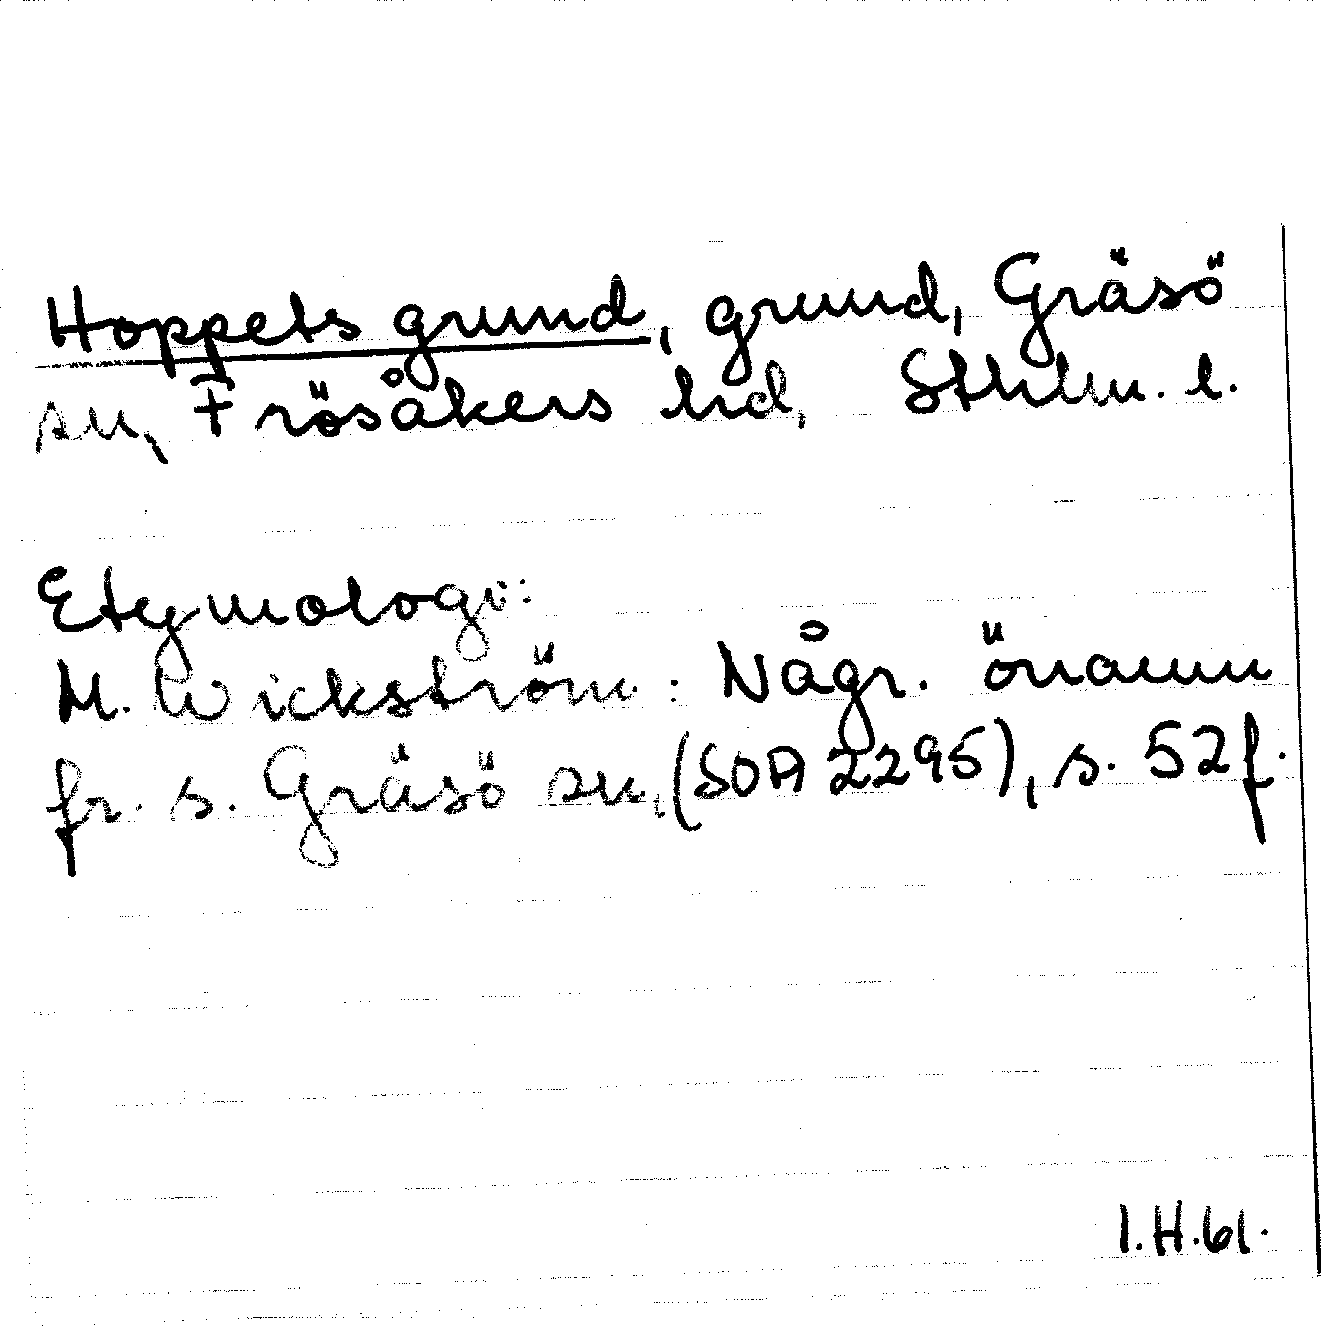 Hoppets grund, grund, Gräsö
sn, Frösåkers hd, Sthlm. l.
Etymologi:
M. Wickström: Någr. önamn
fr. s. Gräsö sn, (SOA 2295), s. 52 f.
I.H.61.